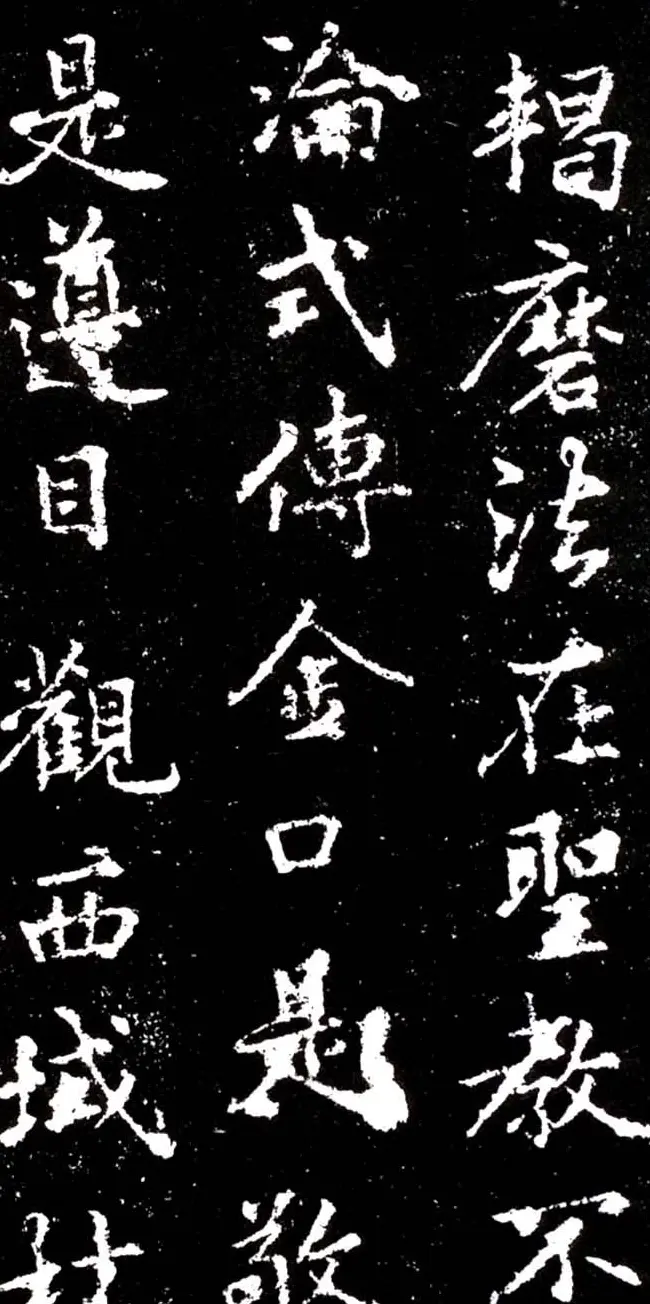 羯磨法在聖教不
淪式傳金口是敬
是遵目觀西域